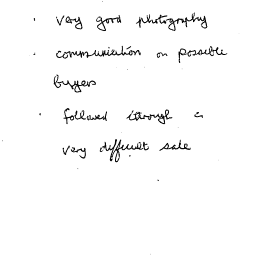 · very good photography
· communication on possible
buyers
· followed through a
very difficult sale